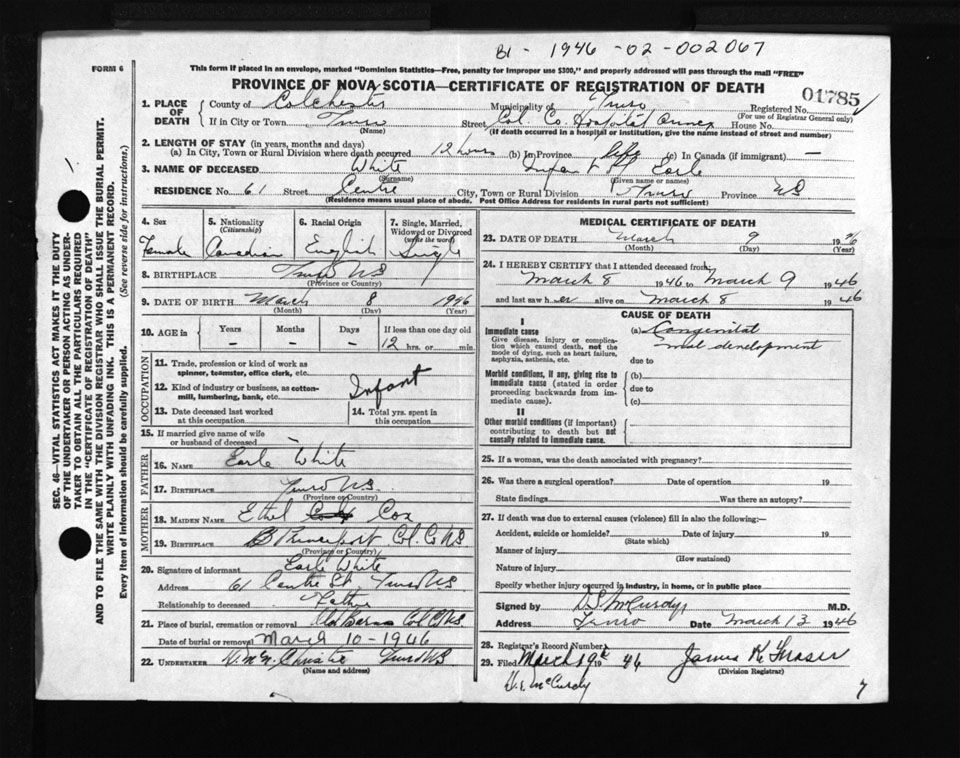 B1 - 1946 - 02 - 002067
FORM 6
This form if placed in an envelope, marked "Dominion Statistics—Free, penalty for improper use $300," and properly addressed will pass through the mail "FREE"
PROVINCE OF NOVA SCOTIA—CERTIFICATE OF REGISTRATION OF DEATH
01785
1. PLACE OF DEATH { County of Colchester Municipality of Truro Registered No.
(For use of Registrar General only)
If in City or Town Truro Street Col. Co. Hospital Annex House No.
(Name) (If death occurred in a hospital or institution, give the name instead of street and number)
2. LENGTH OF STAY (in years, months and days)
(a) In City, Town or Rural Division where death occurred 12 hours (b) In Province life (c) In Canada (if immigrant) —
3. NAME OF DECEASED White Infant of Earle
(Surname) (Given name or names)
RESIDENCE No. 61 Street Centre City, Town or Rural Division Truro Province NS
(Residence means usual place of abode. Post Office Address for residents in rural parts not sufficient)
4. Sex 5. Nationality (Citizenship) 6. Racial Origin 7. Single, Married, Widowed or Divorced (write the word)
Female Canadian English Single
8. BIRTHPLACE Truro NS
(Province or Country)
9. DATE OF BIRTH March 8 1946
(Month) (Day) (Year)
10. AGE in { Years Months Days If less than one day old
– – – 12 hrs. or min.
OCCUPATION
11. Trade, profession or kind of work as spinner, teamster, office clerk, etc.
12. Kind of industry or business, as cotton-mill, lumbering, bank, etc. Infant
13. Date deceased last worked at this occupation 14. Total yrs. spent in this occupation
15. If married give name of wife or husband of deceased
FATHER
16. NAME Earle White
17. BIRTHPLACE Truro NS.
(Province or Country)
MOTHER
18. MAIDEN NAME Ethel Cox
19. BIRTHPLACE Princeport Col. Co NS
(Province or Country)
20. Signature of informant Earle White
Address 61 Centre St. Truro NS
Relationship to deceased Father
21. Place of burial, cremation or removal Old Barns Col Co NS
Date of burial or removal March 10 - 1946
22. UNDERTAKER Christie Truro NS
(Name and address)
MEDICAL CERTIFICATE OF DEATH
23. DATE OF DEATH March 9 1946
(Month) (Day) (Year)
24. I HEREBY CERTIFY that I attended deceased from
March 8 1946 to March 9 1946
and last saw her alive on March 8 1946
CAUSE OF DEATH
I
Immediate cause (a) Congenital
Give disease, injury or complication which caused death, not the mode of dying, such as heart failure, asphyxia, asthenia, etc. mal development
due to
Morbid conditions, if any, giving rise to immediate cause (stated in order proceeding backwards from immediate cause). (b)
due to
(c)
II
Other morbid conditions (if important) contributing to death but not causally related to immediate cause.
25. If a woman, was the death associated with pregnancy?
26. Was there a surgical operation? Date of operation 19
State findings Was there an autopsy?
27. If death was due to external causes (violence) fill in also the following:—
Accident, suicide or homicide? Date of injury 19
(State which)
Manner of injury
(How sustained)
Nature of injury
Specify whether injury occurred in industry, in home, or in public place
Signed by D.S. McCurdy M.D.
Address Truro Date March 13 1946
28. Registrar's Record Number
29. Filed March 19th 1946 James K Fraser
(Division Registrar)
McCurdy
7
SEC. 46—VITAL STATISTICS ACT MAKES IT THE DUTY
OF THE UNDERTAKER OR PERSON ACTING AS UNDER-
TAKER TO OBTAIN ALL THE PARTICULARS REQUIRED
IN THE "CERTIFICATE OF REGISTRATION OF DEATH"
AND TO FILE THE SAME WITH THE DIVISION REGISTRAR WHO SHALL ISSUE THE BURIAL PERMIT.
WRITE PLAINLY WITH UNFADING INK. THIS IS A PERMANENT RECORD.
Every item of information should be carefully supplied. (See reverse side for instructions.)